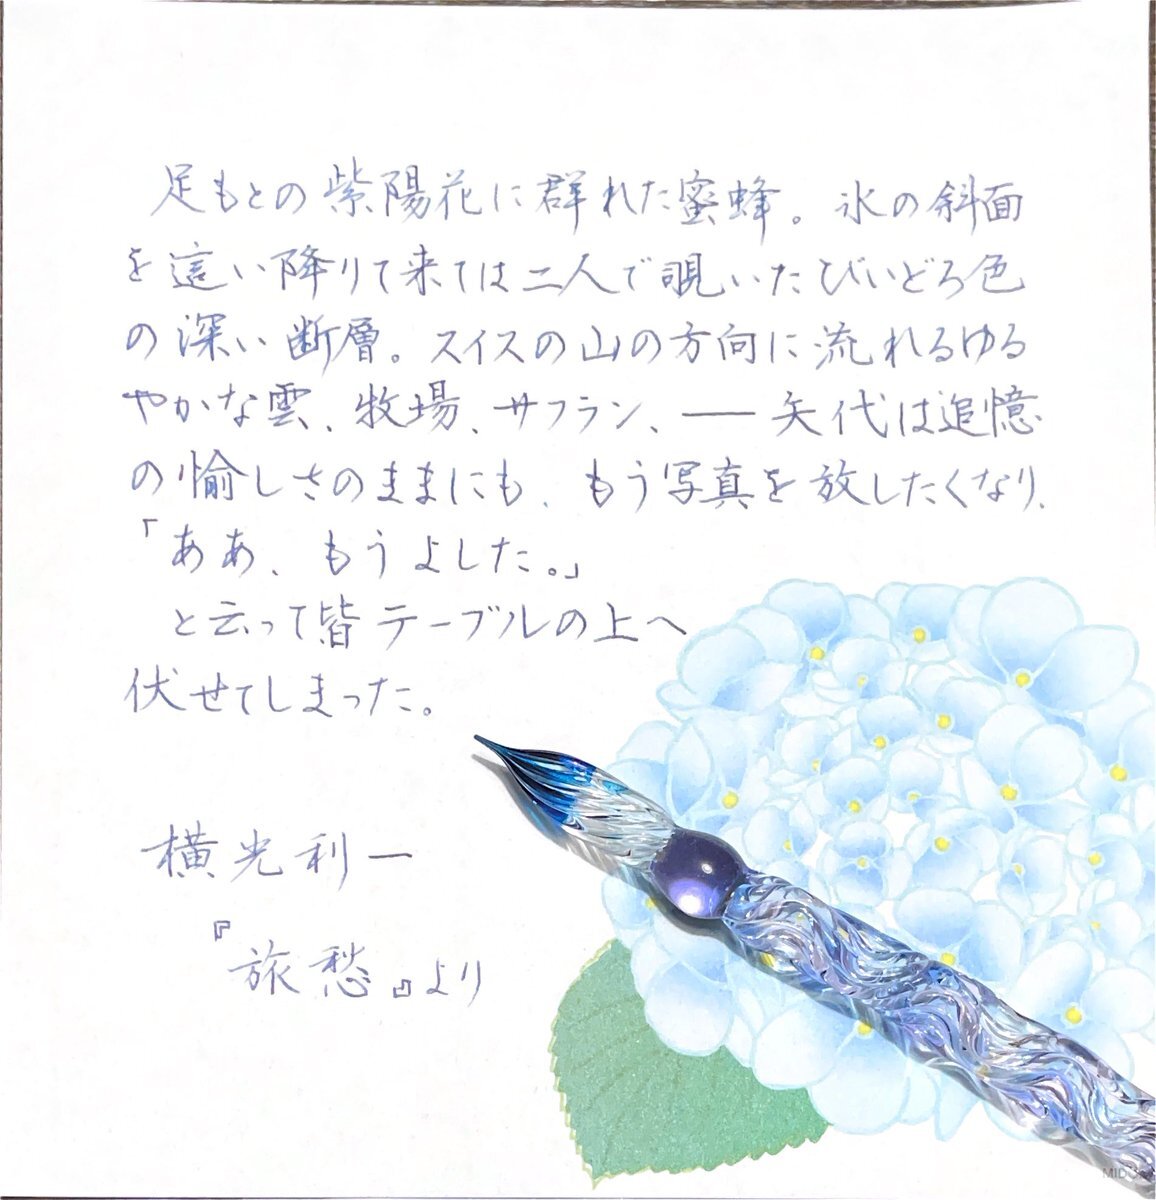 足もとの紫陽花に群れた蜜蜂。氷の斜面
を這い降りて来ては二人で覗いたびいどろ色
の深い断層。スイスの山の方向に流れるゆる
やかな雲、牧場、サフラン、――矢代は追憶
の愉しさのままにも、もう写真を放したくなり、
「ああ、もうよした。」
と云って皆テーブルの上へ
伏せてしまった。
横光利一
『旅愁』より